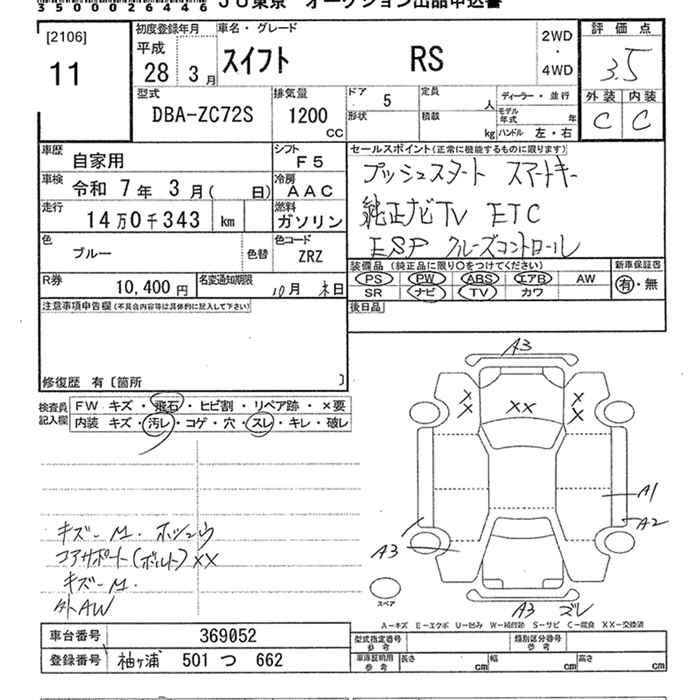 35000026446 JU東京 オークション出品申込書
[2106]
11
初度登録年月
平成
28 年 3 月
車名・グレード
スイフト RS
2WD
・
4WD
評価点
3.5
外装 内装
C C
型式
DBA-ZC72S
排気量
1200
CC
ドア 5
形状
定員 人
積載 kg
ディーラー・並行
モデル年式 年
ハンドル 左・右
車歴 自家用
シフト F5
車検 令和 7年 3月( 日)
冷房 AAC
走行 14万0千343 km
燃料 ガソリン
色 ブルー 色替
色コード ZRZ
R券 10,400 円
名変通知期限 10月 末日
セールスポイント(正常に機能するものに限ります)
プッシュスタート スマートキー
純正ナビTV ETC
ESP クルーズコントロール
装備品 (純正品に限り〇をつけてください)
新車保証書
PS PW ABS エアB AW
有・無
SR ナビ TV カワ
後日品
注意事項申告欄(不具合内容等は具体的に記入して下さい)
修復歴 有〔箇所 〕
検査員記入欄
FW キズ・飛石・ヒビ割・リペア跡・×要
内装 キズ・汚レ・コゲ・穴・スレ・キレ・破レ
キズーM. ホシュウ
コアサポート(ボルト)XX
キズーM.
外AW
A3
X X
X X
XX
A1
A2
A3
A3 ズレ
スペア
A-キズ E-エクボ U-凹み W-補修跡 S-サビ C-腐食 XX-交換済
車台番号 369052
登録番号 袖ヶ浦 501 つ 662
型式指定番号 参考
類別区分番号 参考
車庫証明用 参考
長さ cm
幅 cm
高さ cm